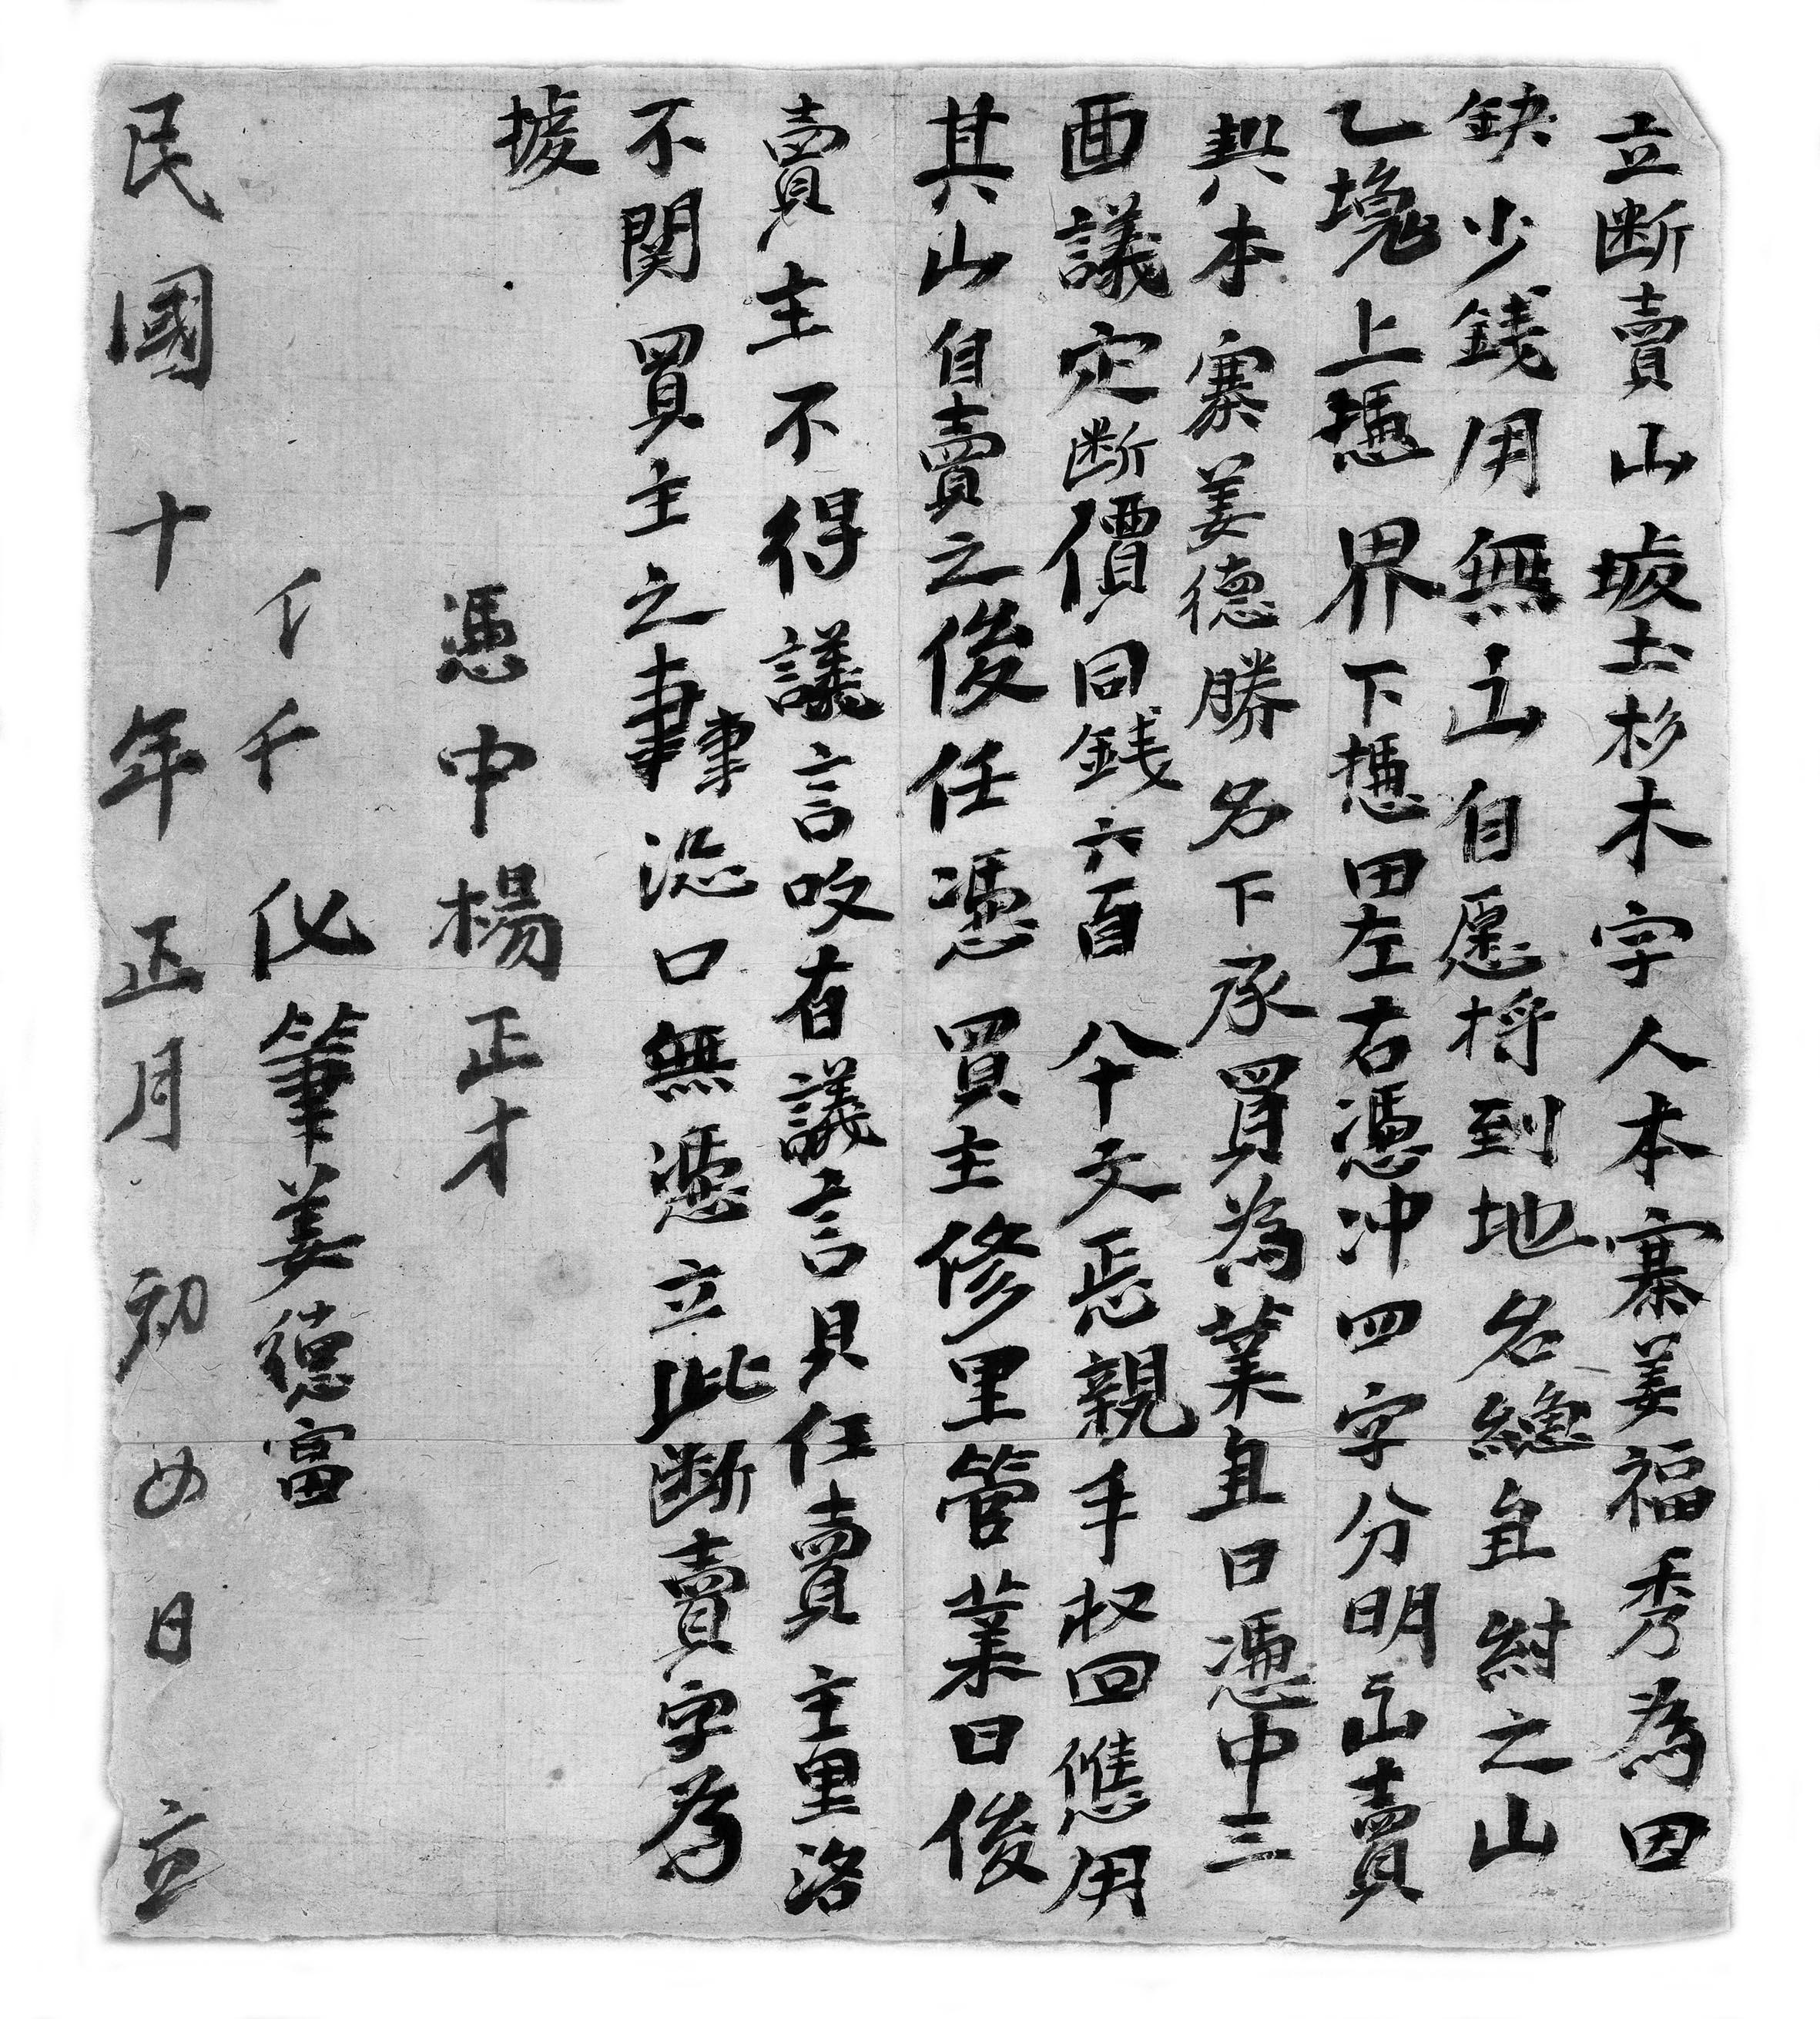 立断賣山塲土杉木字人本寨姜福秀為因
缺少銭用無出自愿将到地名總且紂之山
乙塊上憑界下憑田左右憑冲四字分明出賣
與本寨姜德勝名下承買為業自日憑中三
面議定断價同銭六百八十文恁親手収回應用
其山自賣之後任憑買主修里管業日後
賣主不得議言吺有議言具任賣主里洛
不関買主之事事 口無憑立此断賣字為
據
憑中楊正才
仃千 代筆姜德富
民國十年正月初四日立